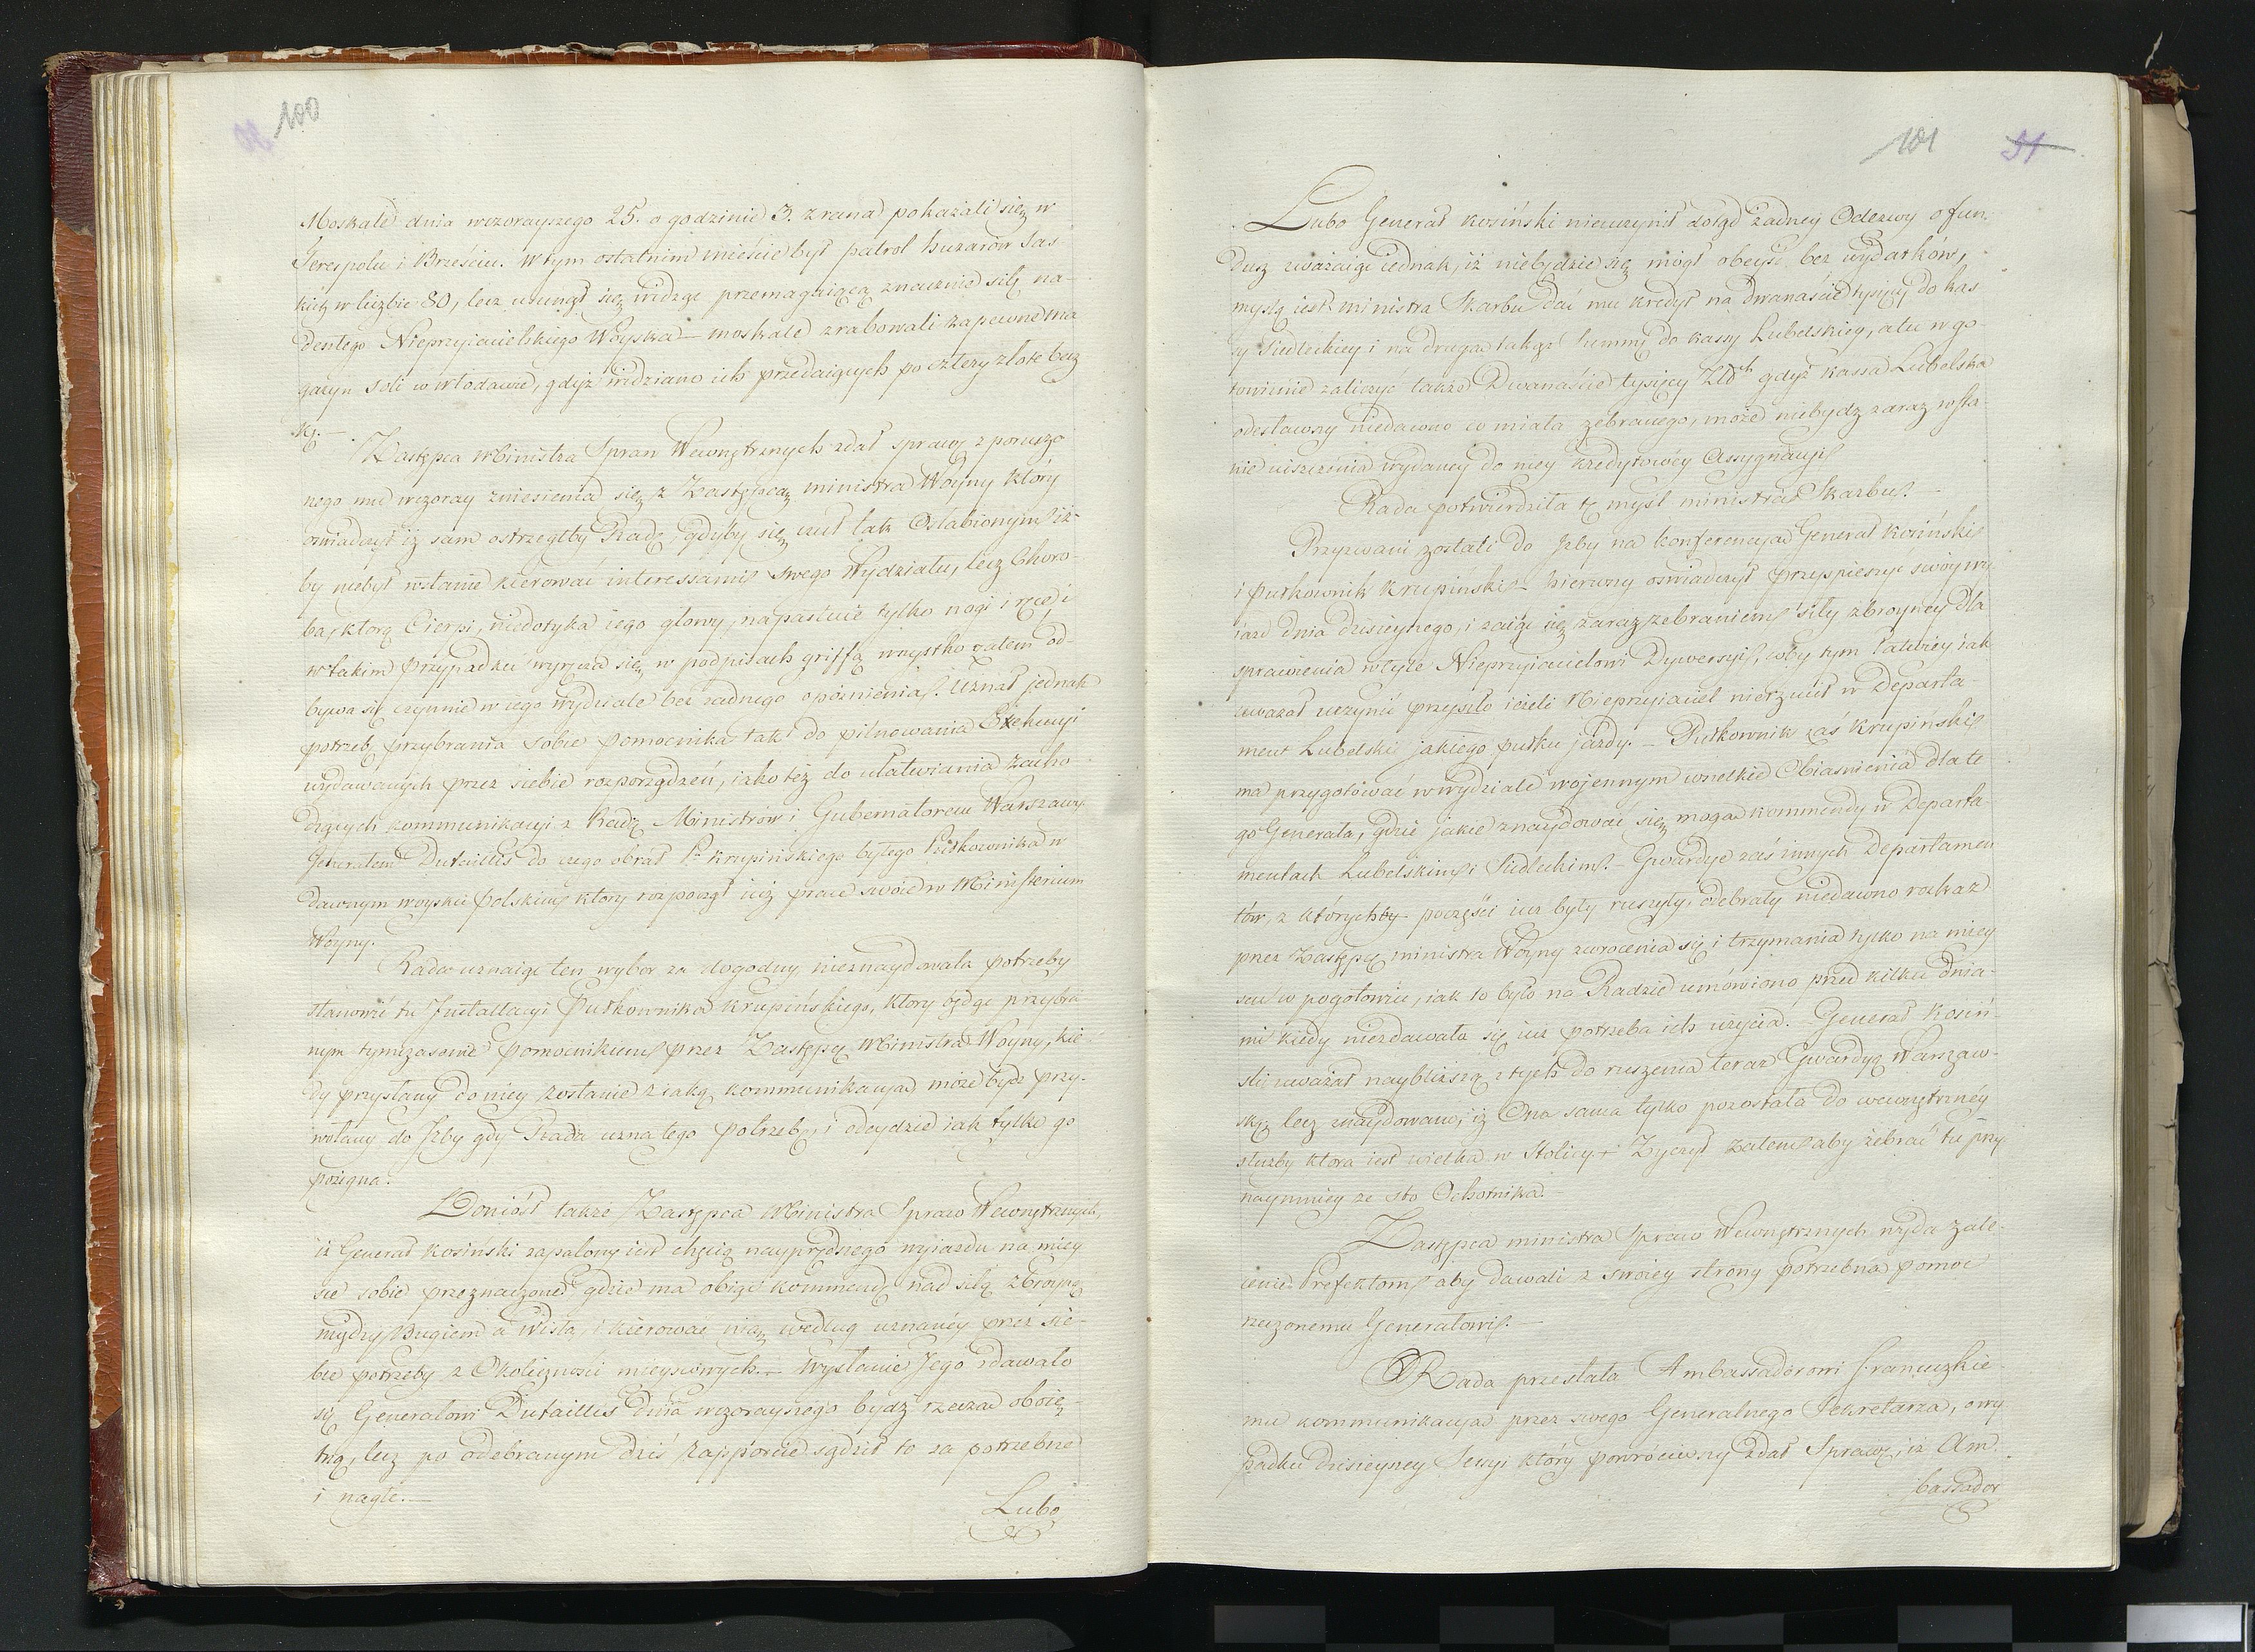 100
Moskale dnia wczorayszego 25. o godzinie 3. zrana pokazali się w
Terespolu i Brześciu. W tym ostatnim mieście był patrol huzarów Sas
kich w liczbie 80, lecz usunął się widząc przemagaiącą znacznie siłę na-
deszłego Nieprzyiacielskiego Woyska — moskale zrabowali zapewne ma
gazyn soli w Włodawie, gdyż widziano ich przedaiących po cztery złote becz
kę. —
Zastępca Ministra Spraw Wewnętrznych zdał sprawę z poruczo
nego mu wczoray zniesienia się z Zastępcą ministra Woyny który
oświadczył iż sam ostrzegłby Radę gdyby się czuł tak Osłabionym iż-
by niebył wstanie kierować interessami swego Wydziału, lecz Choro-
ba, którą Cierpi, niedotyka iego głowy, napastuie tylko nogi i ręce i
w takim Przypadku wyręcza się w podpisach griffą wszystko zatem od-
bywa się czynnie w iego wydziale bez żadnego opóźnienia. Uznał jednak
potrzebę przybrania sobie pomocnika tak do pilnowania Exekucyi
wydawanych przez siebie rozporządzeń, iako też do ułatwiania zacho
dzących kommunikacyi z Radą Ministrów i Gubernatorem Warszawy
Generałem Dutaillis do czego obrał P. Krupińskiego byłego Pułkownika w
dawnym woysku polskim który rozpoczął iuż prace swoie w Ministerium
Woyny.
Rada uznaiąc ten wybór za dogodny nieznaydowała potrzeby
stanowić tu Installacyi Pułkownika Krupińskiego, który będąc przybra
nym tymczasowie Pomocnikiem przez Zastępcę Ministra Woyny, kie
dy przysłany do niey zostanie z iaką kommunikacyą może bydź przy-
wołany do Izby gdy Rada uzna tego potrzebę, i odeydzie iak tylko go
pożegna.
Doniósł także Zastępca Ministra Spraw Wewnętrznych,
iż Generał Kosiński zapalony iest chęcią nayprędszego wyiazdu na miey
sce sobie przeznaczone gdzie ma obiąć kommendę nad siłą zbroyną
między Bugiem a Wisłą, i kierować nią według uznanéy przez sie-
bie potrzeby z Okoliczności mieyscowych. — Wysłanie Jego zdawało
się Generałowi Dutaillis dnia wczorayszego bydź rzeczą oboię-
tną, lecz po odebranym dziś Rapporcie sądził to za potrzebne
i nagłe. —
Lubo
101 51
Lubo Generał Kosiński nieuczynił dotąd żadney Odezwy o fun
dusz uważaiąc iednak, iż niebędzie się mógł obeyść bez wydatków,
myślą iest ministra Skarbu dać mu kredyt na dwanaście tysięcy do kas
sy Siedleckiey i na drugą takąż Summę do kassy Lubelskiey, a tu w go
towiznie zaliczyć także Dwanaście tysięcy Złch gdyż kassa Lubelska
odesławszy niedawno co miała zebranego, może niebydź zaraz w sta
nie uiszczenia wydaney do niey kredytowéy Assygnacyi
Rada potwierdziła tę myśl ministra Skarbu. —
Przyzwani zostali do Izby na konferencyą Generał Kosiński
i Pułkownik Krupiński — Pierwszy oświadczył przyspieszyć swóy wy
iazd dnia dzisieyszego, i zaiąć się zaraz zebraniem siły zbroyney dla
sprawienia w tyle Nieprzyiacielowi Dywersyi, coby tym łatwiéy iak
uważał uczynić przyszło ieżeli Nieprzyiaciel nierzucił w Departa-
ment Lubelski jakiego pułku jazdy. — Pułkownik zaś Krupiński
ma przygotować w wydziale wojennym wszelkie Obiaśnienia dla te
go Generała, gdzie jakie znaydować się mogą kommendy w Departa-
mentach Lubelskim i Siedleckim. — Gwardye zaś innych Departamen
tów, z których by poczęści iuż były ruszyły, odebrały niedawno rozkaz
przez Zastępcę ministra Woyny zwrócenia się i trzymania tylko na miey
scu w pogotowiu, iak to było na Radzie umówiono przed kilku dnia-
mi kiedy niezdawała się iuż potrzeba ich użycia. Generał Kosiń-
ski uważał naybliższą z tych do ruszenia teraz Gwardyą Warszaw-
ską lecz znaydowano, iż Ona sama tylko pozostała do wewnętrznéy
służby która iest wielka w Stolicy + Życzył zatem aby zebrać tu przy
naymniey ze sto Ochotnika. —
Zastępca ministra Spraw Wewnętrznych wyda zale-
cenie Prefektom aby dawali z swoiey strony potrzebną pomoc
rzeczonemu Generałowi. —
Rada przesłała Ambassadorowi francuzkie-
mu kommunikacyą przez swego Generalnego Sekretarza, o wy
padku dzisieyszey Sessyi który powróciwszy zdał Sprawę, iż Am-
bassador